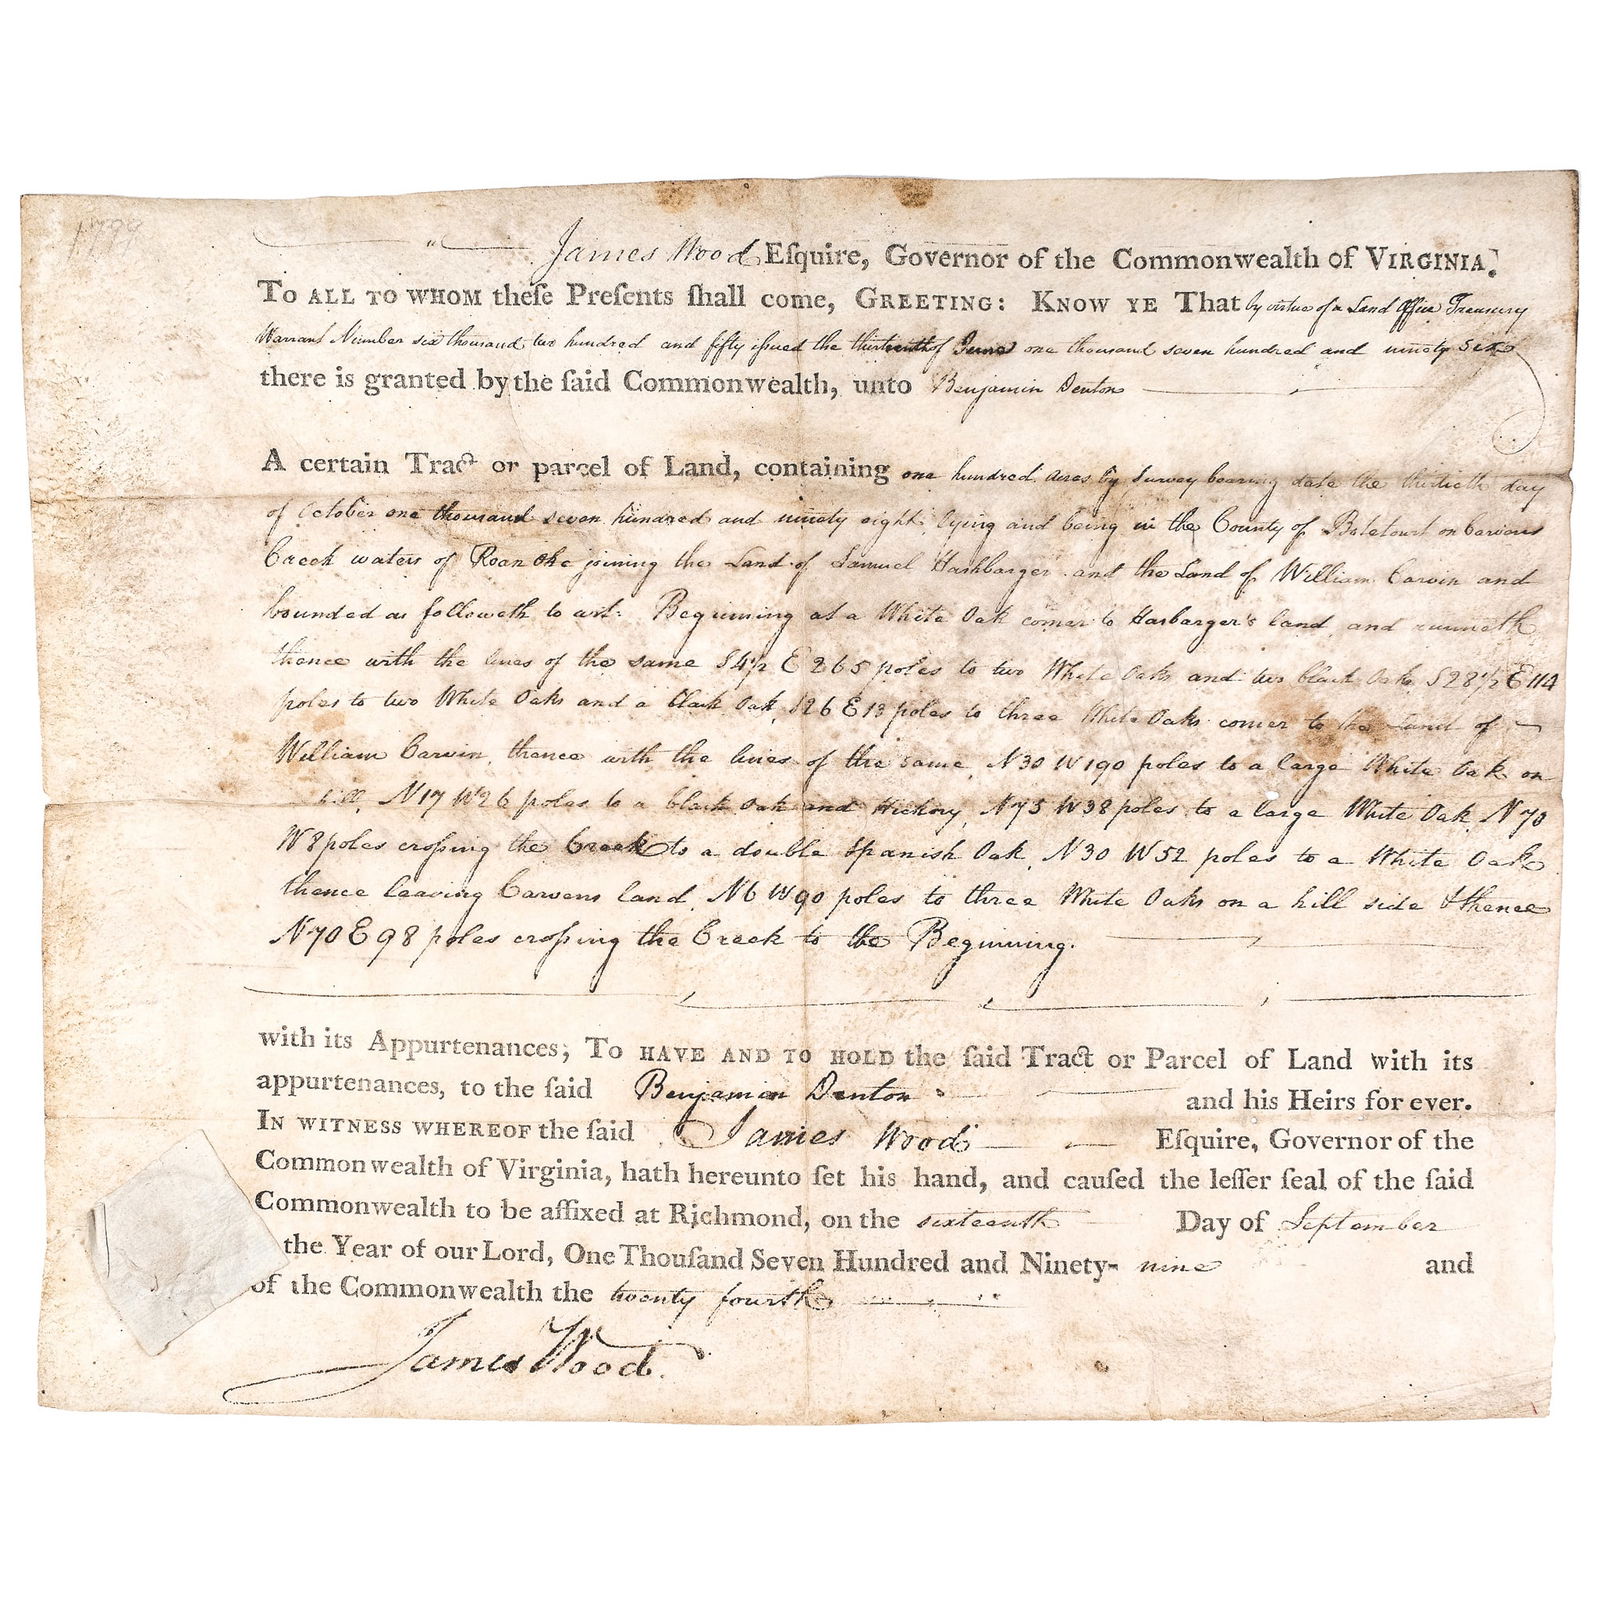 1799
James Wood Eſquire, Governor of the Commonwealth of VIRGINIA:
TO ALL TO WHOM theſe Preſents ſhall come, GREETING: KNOW YE That by virtue of a Land Office Treasury
Warrant Number six thousand two hundred and fifty iſsued the thirteenth of June one thousand seven hundred and ninety six
there is granted by the ſaid Commonwealth, unto Benjamin Denton
A certain Tract or parcel of Land, containing one hundred acres by Survey bearing date the thirtieth day
of October one thousand seven hundred and ninety eight, lying and being in the County of Botetourt on Carvins
Creek waters of Roanoke joining the Land of Samuel Hashbarger and the Land of William Carvin and
bounded as followeth to wit: Beginning at a White Oak corner to Harbarger's land, and runneth
thence with the lines of the same S4½ E 265 poles to two White Oaks and two black Oaks, S28½ E 114
poles to two White Oaks and a black Oak, S26 E 13 poles to three White Oaks corner to the Land of
William Carvin, thence with the lines of the same, N30 W190 poles to a large White Oak on
hill, N17 W26 poles to a black oak and Hickory, N75 W38 poles to a large White Oak, N70
W8 poles croſsing the Creek to a double Spanish Oak, N30 W52 poles to a White Oak
thence leaving Carvens land, N6 W90 poles to three White Oaks on a hill side & thence
N70 E98 poles croſsing the Creek to the Beginning.
with its Appurtenances; TO HAVE AND TO HOLD the ſaid Tract or Parcel of Land with its
appurtenances, to the ſaid Benjamin Denton and his Heirs for ever.
IN WITNESS WHEREOF the ſaid James Wood Eſquire, Governor of the
Commonwealth of Virginia, hath hereunto ſet his hand, and cauſed the leſſer ſeal of the ſaid
Commonwealth to be affixed at Richmond, on the sixteenth Day of September
the Year of our Lord, One Thouſand Seven Hundred and Ninety- nine and
of the Commonwealth the twenty fourth
James Wood.